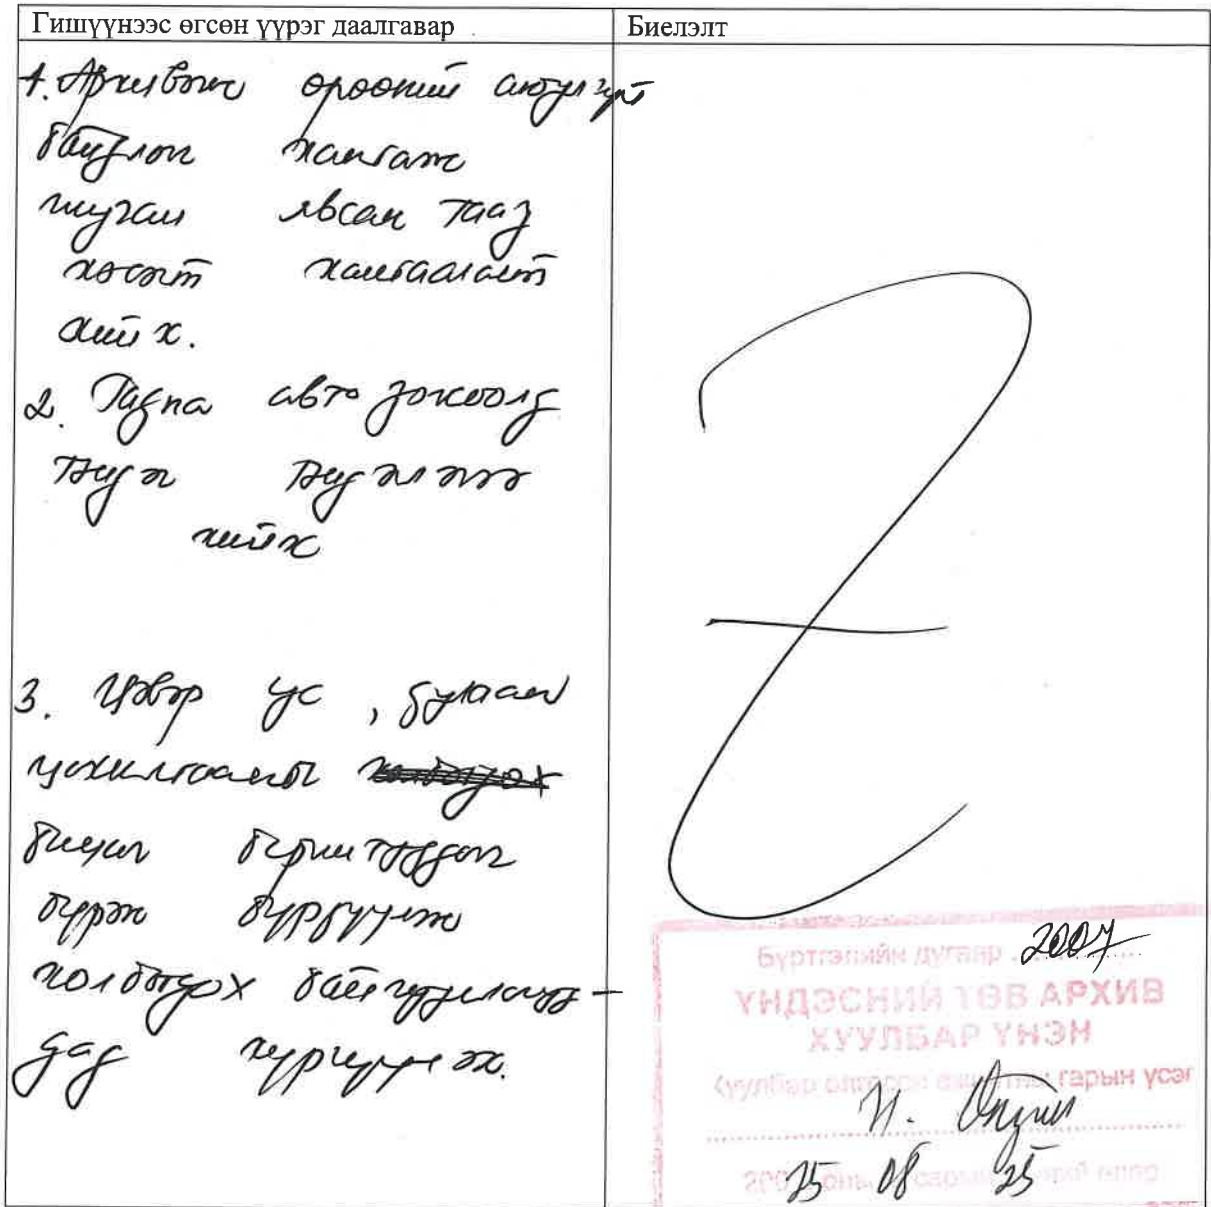 Гишүүнээс өгсөн үүрэг даалгавар
Биелэлт
1. Архивын өрөөний аюулгүй
байдлыг хангаж
шугам явсан тааз
хэсэгт хамгаалалт
хийх.
2. Гадна авто зогсоолд
тэмдэг тэмдэглэгээ
хийх
3. Цэвэр ус, дулаан
цахилгааны
бичиг баримтуудыг
бүрэн бүрдүүлж
холбогдох байгууллагуу-
дад хүргүүлэх.
Бүртгэлийн дугаар 2007
ҮНДЭСНИЙ ТӨВ АРХИВ
ХУУЛБАР ҮНЭН
Хуулбар олгосон ажилтны гарын үсэг
200 25 оны 08 сарын 25 өдөр